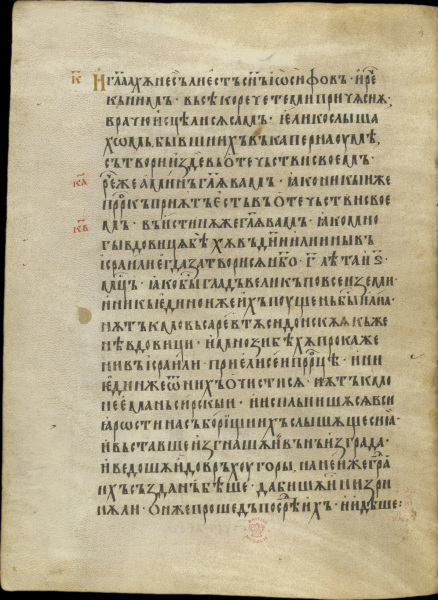 к҃
И г҃лаахѫ не съ ли естъ сн҃ъ їѡсифовъ · и реⷱ҇
къ нимъ · въсѣко речете ми притчѫ сиѫ ·
врачю исцѣли сѧ самъ · елико слыша
хѡмь бывшиихъ въ капернаоумѣ,
сътвори и зде въ отечьстви своемъ ·
к҃а
реⷱ҇ же аминъ г҃лѫ вамъ · ꙗко никыиже
пр҃ркъ приѧтъ естъ въ отечьстви свое
к҃в
мъ · въ истинѫ же г҃лѫ вамъ · ꙗко мно
гы вдовицѫ бѣхѫ въ дн҃и илиины въ
ісраили егда затвори сѧ нб҃о · г҃ лѣта и ѕ҃
мц҃ъ · ꙗко бы гладъ великъ по всеи земи ·
и ни къ единои же ихъ пощенъ бы илиа ·
нѫ тъкмо въ сарефтѫ сидонскѫѫ къ же
нѣ вдовици · и мнози бѣхѫ прокаже
ни въ ісраили · при елисеи пр҃рцѣ · и ни
единже ѿ нихъ очисти сѧ · нѫ тъкмо
нееманъ сирскыи · и исплънишѫ сѧ вси
ꙗрости на съборищихъ слышѫще сиа ·
и въставше изгнашѫ и вънъ из града ·
и ведошѫ и до връхоу горы, на неиже граⷣ
ихъ създанъ бѣше · да бишѫ и низри
нѫли · онже прошедъ посрѣⷣ ихъ · идѣше:·